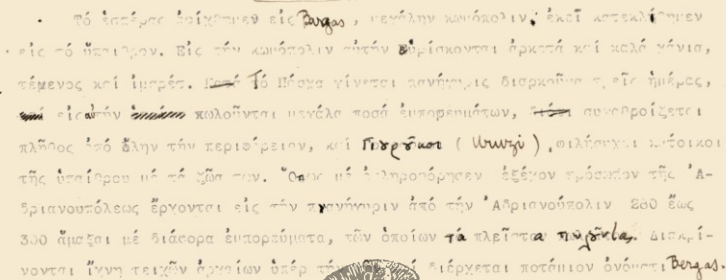 Τό ἑσπέρας ἐφθάσαμεν εἰς Bergas, μεγάλην κωμόπολιν, ἐκεῖ κατεκλίθημεν
εἰς τό ὕπαιθρον. Εἰς τήν κωμόπολιν αὐτήν εὑρίσκονται ἀρκετά καί καλά χάνια,
τέμενος καί ἱμαρέτ. Τό Πάσχα γίνεται πανήγυρις διαρκοῦσα τρεῖς ἡμέρας,
εἰς αὐτήν πωλοῦνται μεγάλα ποσά ἐμπορευμάτων, συναθροίζεται
πλῆθος ἀπό ὅλην τήν περιφέρειαν, καί Γιουροῦκοι ( Uruzi ), φιλήσυχοι κάτοικοι
τῆς ὑπαίθρου μέ τά ζῶα των. Ὅπως μέ ἐπληροφόρησεν ἐξέχον πρόσωπον τῆς Ἀ-
δριανουπόλεως ἔρχονται εἰς τήν πανήγυριν ἀπό τήν Ἀδριανούπολιν 280 ἕως
300 ἅμαξαι μέ διάφορα ἐμπορεύματα, τῶν ὁποίων τά πλεῖστα Διακρί-
νονται ἴχνη τειχῶν ἀρχαίων ὑπέρ διέρχεται ποτάμιον ὀνόματι Bergas.